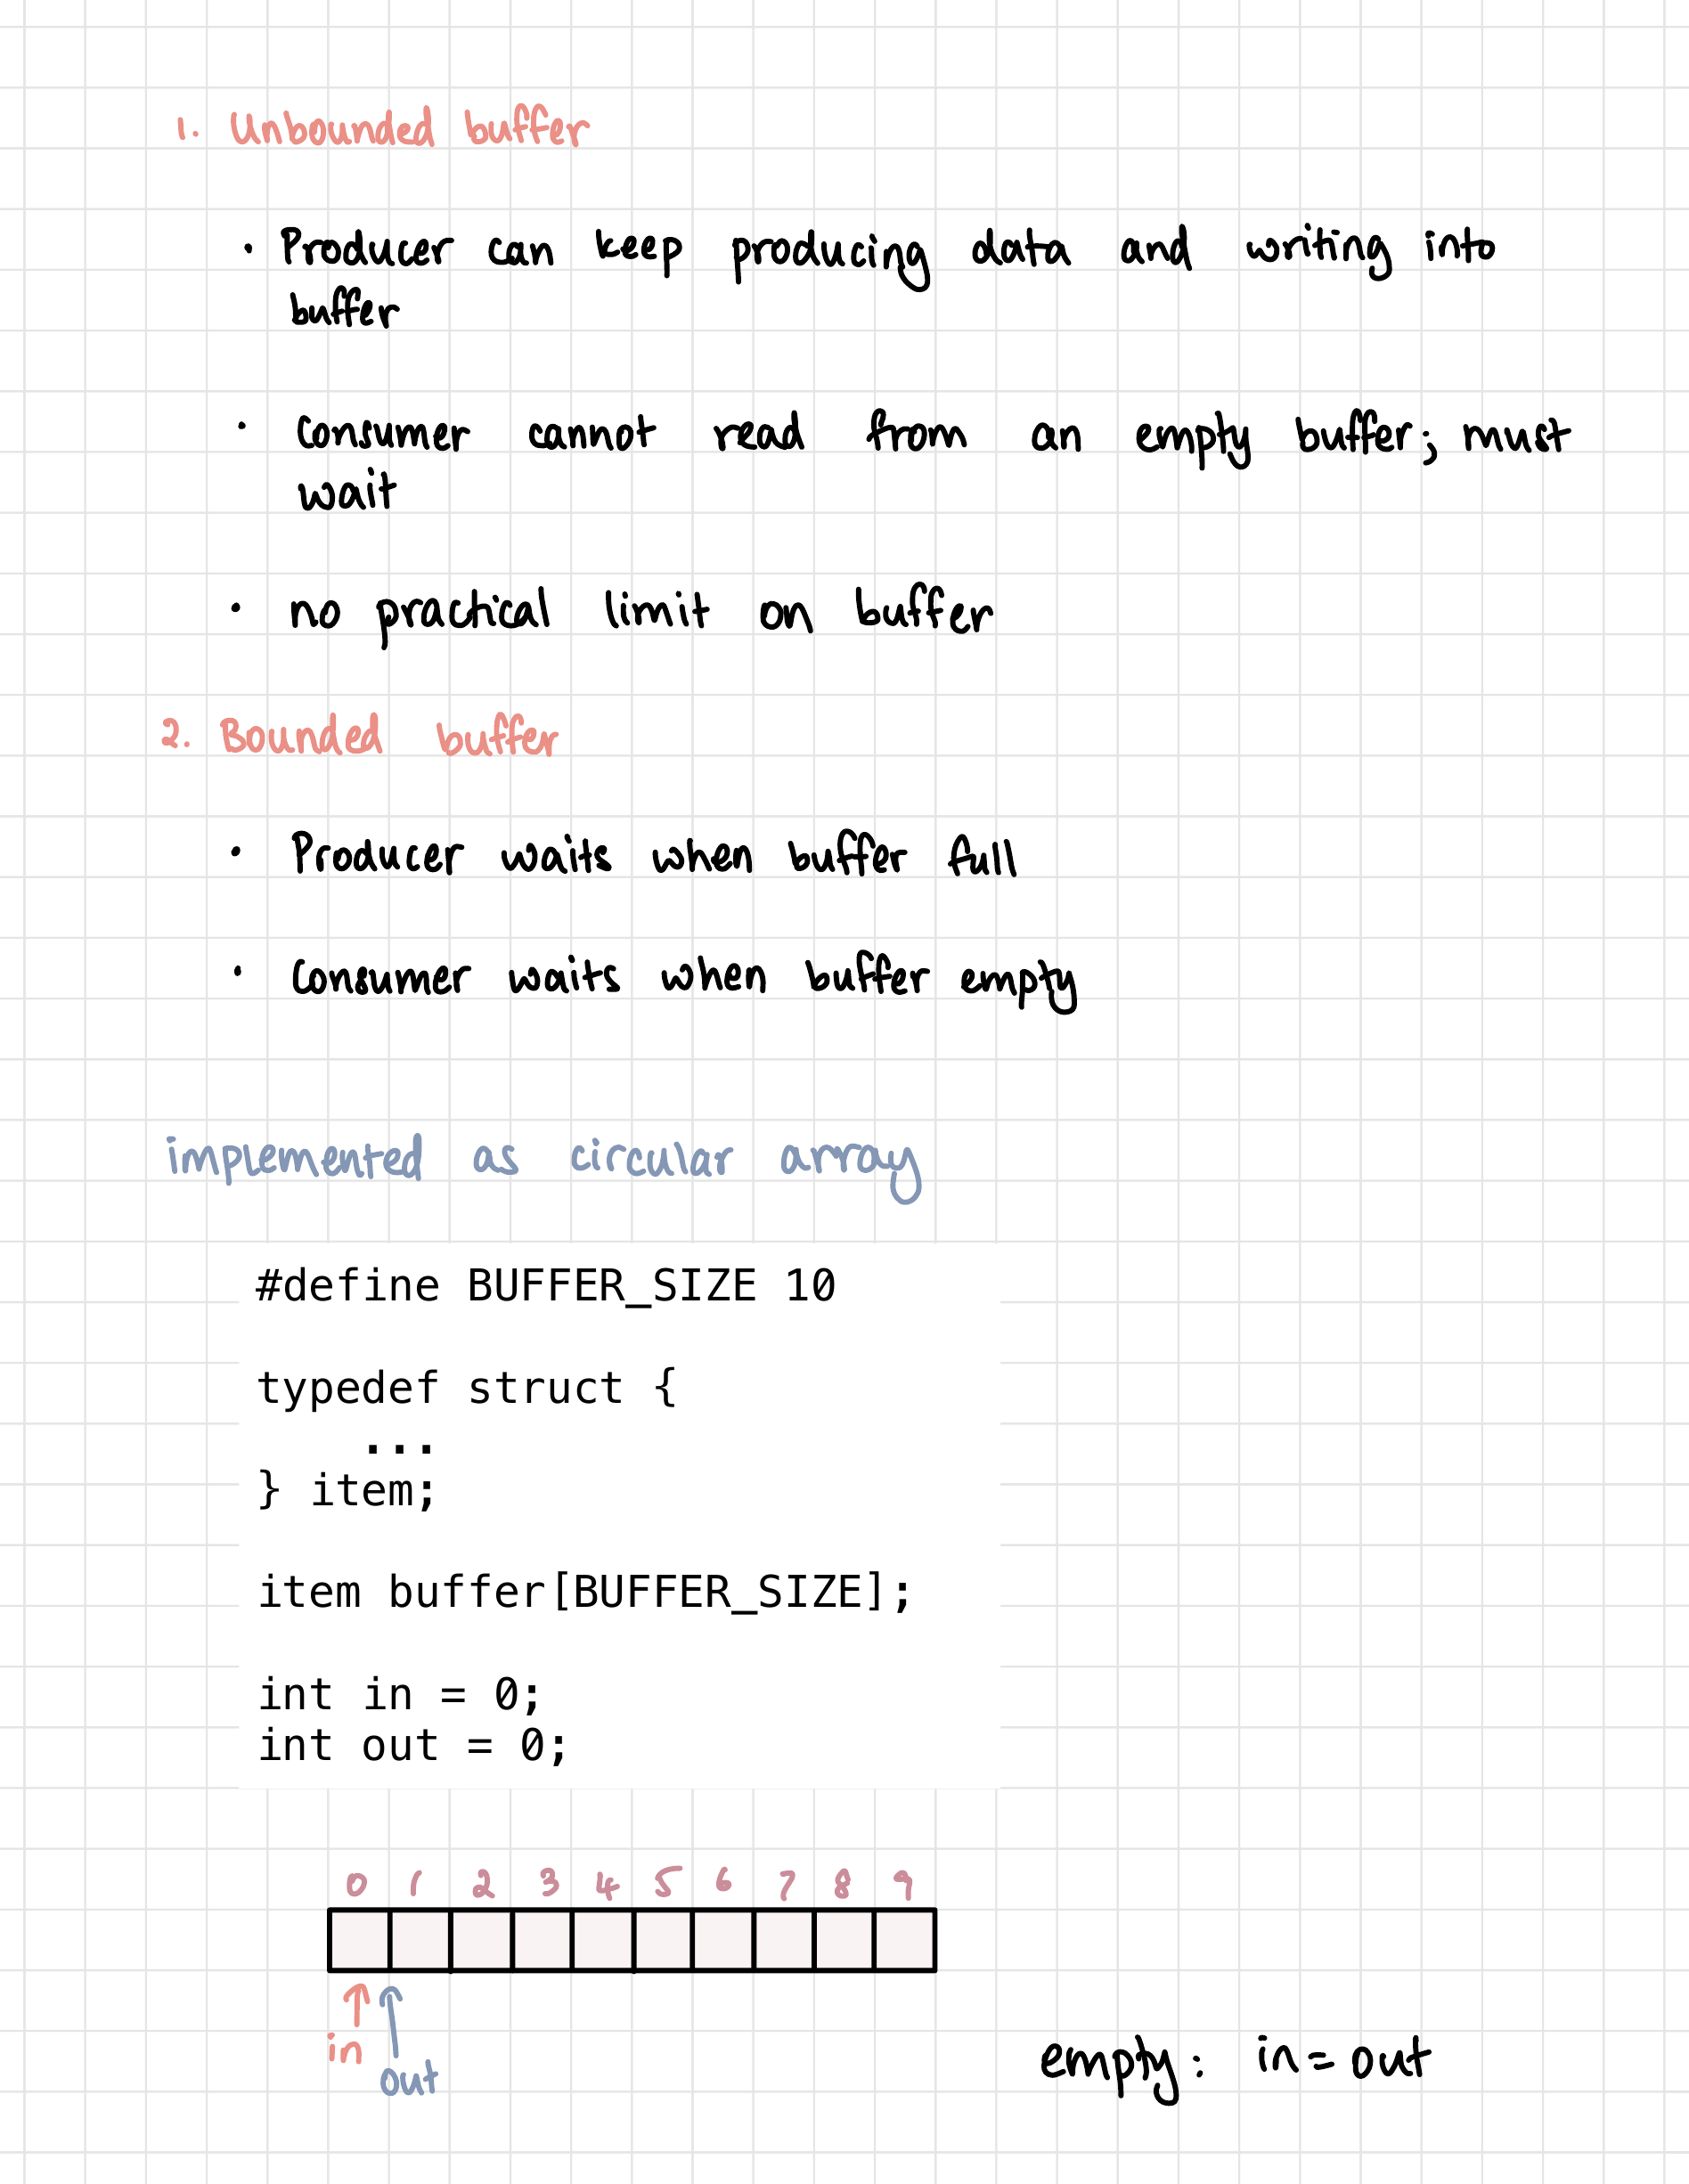 1. Unbounded buffer
• Producer can keep producing data and writing into
buffer
• Consumer cannot read from an empty buffer; must
wait
• no practical limit on buffer
2. Bounded buffer
• Producer waits when buffer full
• Consumer waits when buffer empty
implemented as circular array
#define BUFFER_SIZE 10
typedef struct {
...
} item;
item buffer[BUFFER_SIZE];
int in = 0;
int out = 0;
0 1 2 3 4 5 6 7 8 9
in
out
empty: in = out